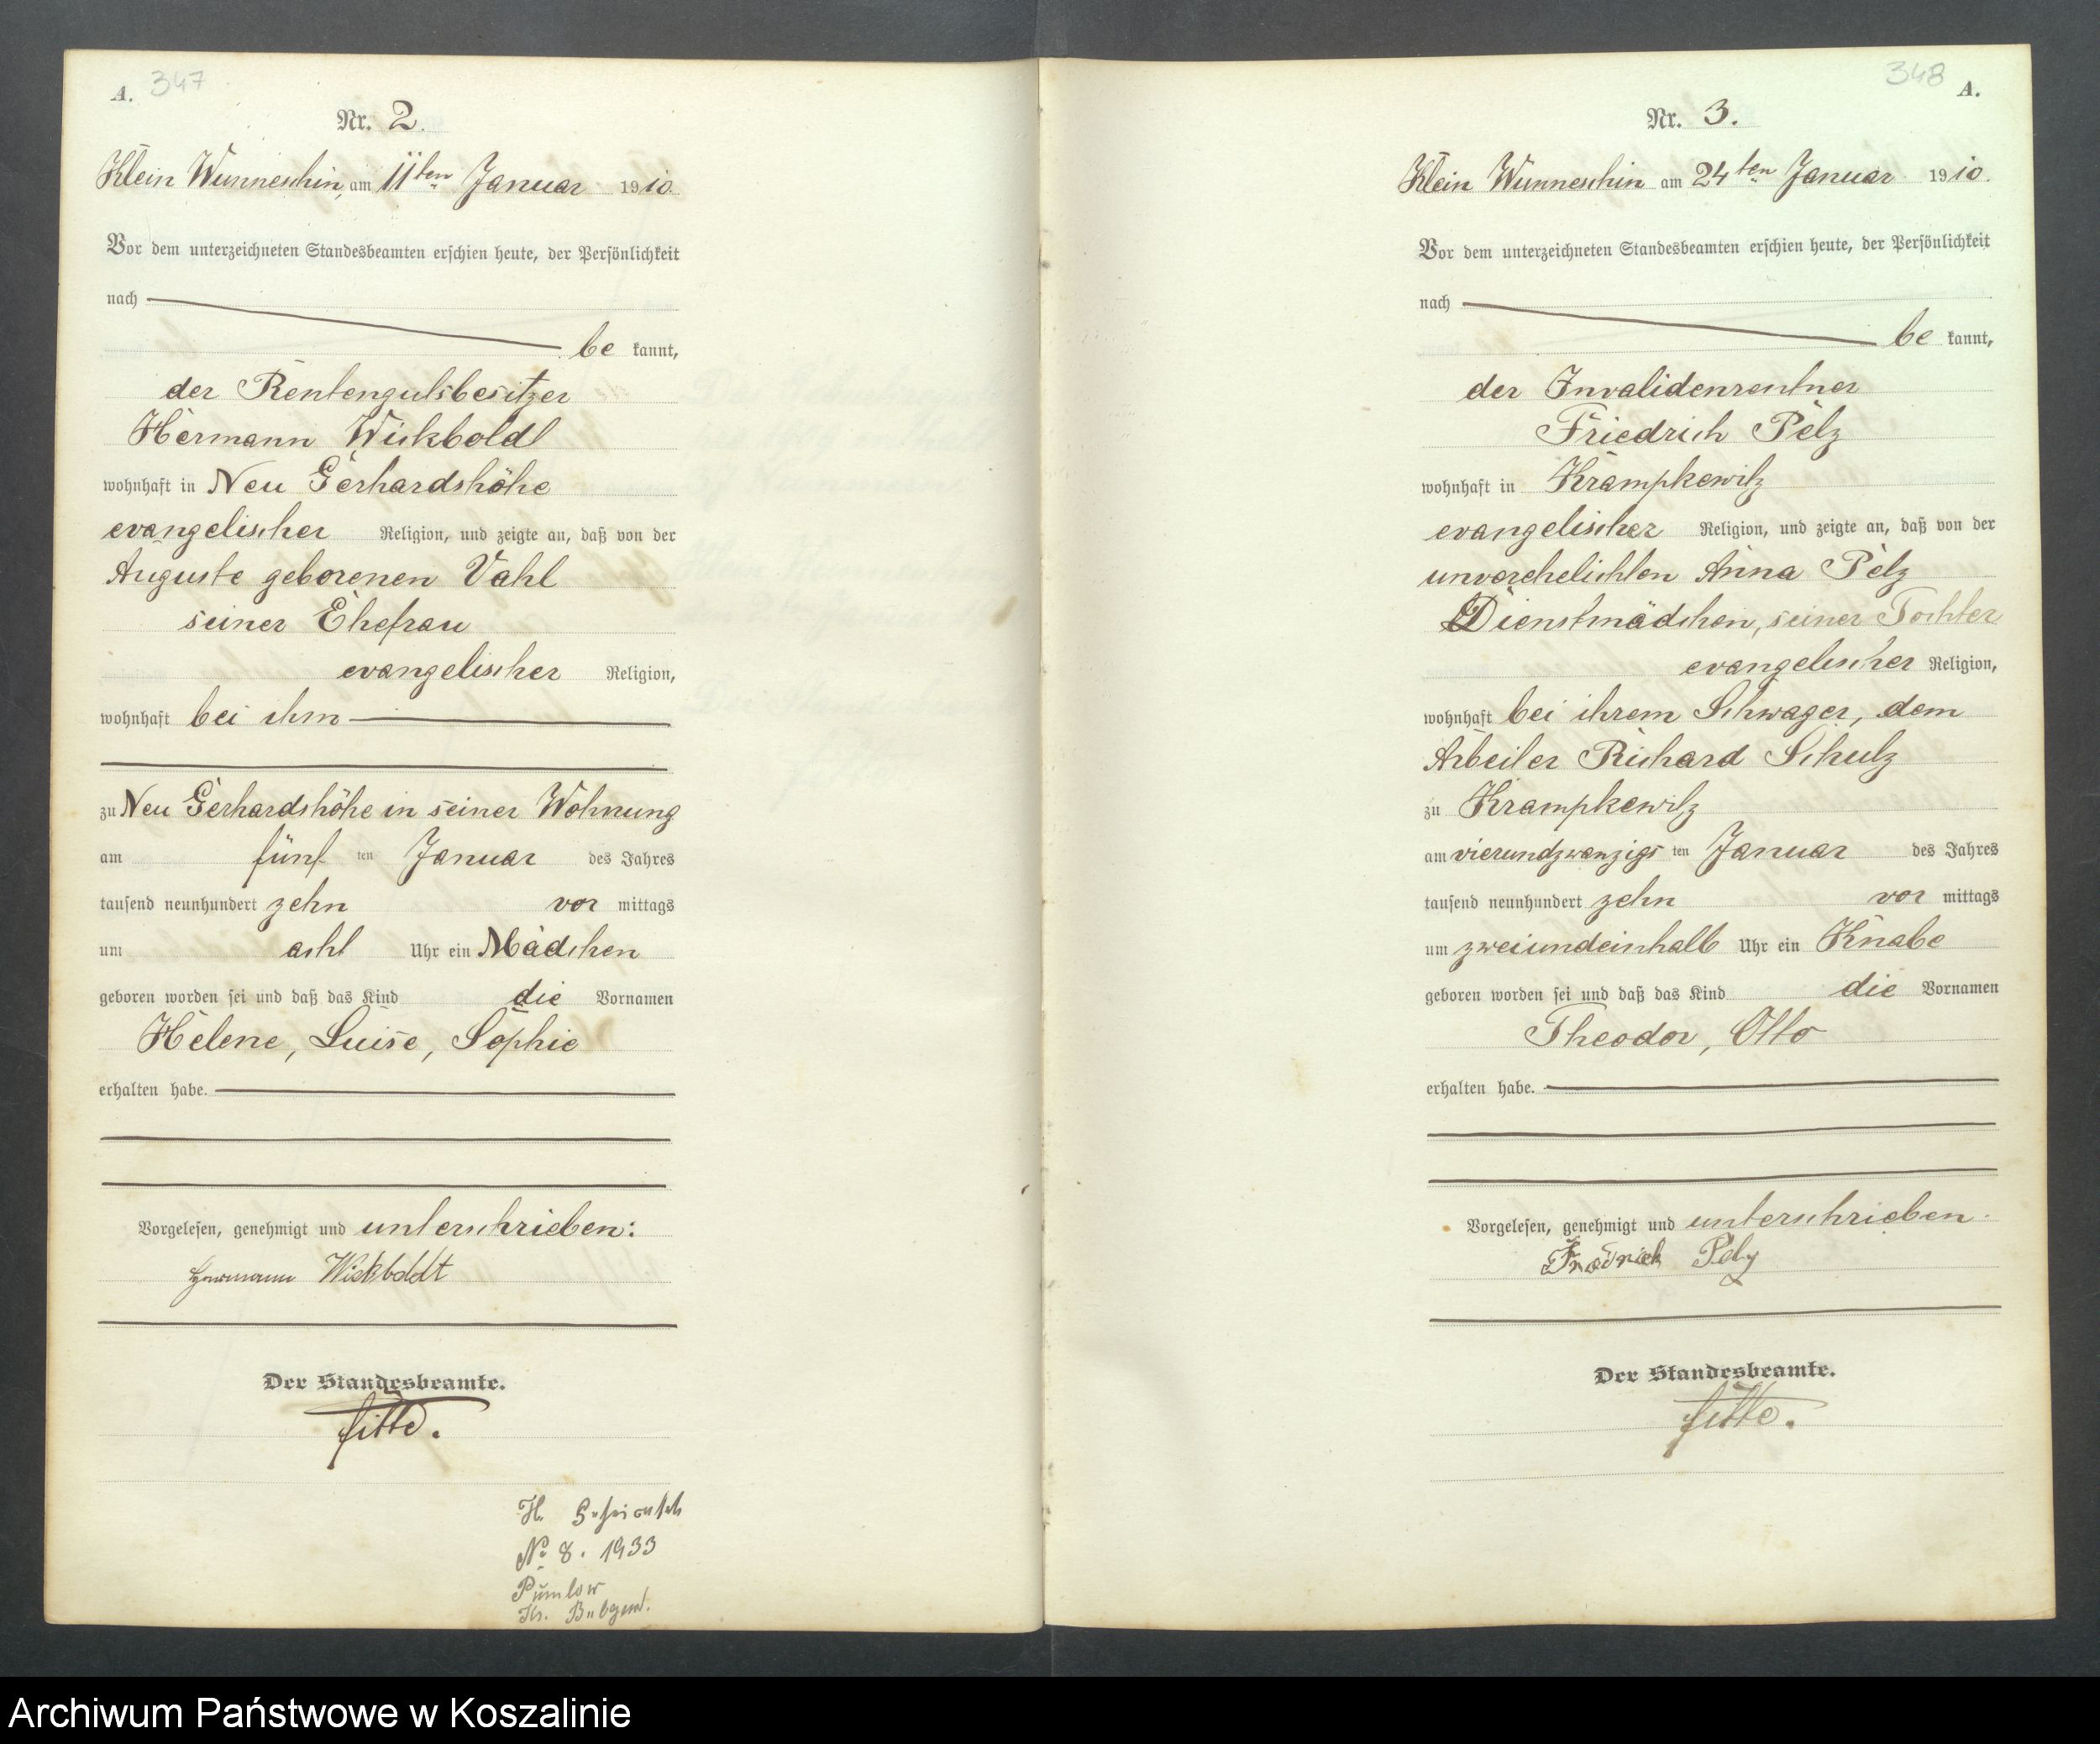 A. 347
Nr. 2.
Klein Wunneschin, am 11ten Januar 1910
Vor dem unterzeichneten Standesbeamten erschien heute, der Persönlichkeit
nach
be kannt,
der Rentengutsbesitzer
Hermann Wickboldt
wohnhaft in Neu Gerhardshöhe
evangelischer Religion, und zeigte an, daß von der
Auguste geborenen Vahl
seiner Ehefrau
evangelischer Religion,
wohnhaft bei ihm
zu Neu Gerhardshöhe in seiner Wohnung
am fünf ten Januar des Jahres
tausend neunhundert zehn vor mittags
um acht Uhr ein Mädchen
geboren worden sei und daß das Kind die Vornamen
Helene, Luise, Sophie
erhalten habe.
Vorgelesen, genehmigt und unterschrieben:
Hermann Wickboldt
Der Standesbeamte.
H.
No 8. 1933
Kr.
348 A.
Nr. 3.
Klein Wunneschin am 24ten Januar 1910.
Vor dem unterzeichneten Standesbeamten erschien heute, der Persönlichkeit
nach
be kannt,
der Invalidenrentner
Friedrich Pelz
wohnhaft in Krampkewitz
evangelischer Religion, und zeigte an, daß von der
unverehelichten Anna Pelz
Dienstmädchen, seiner Tochter
evangelischer Religion,
wohnhaft bei ihrem Schwager, dem
Arbeiter Richard Schulz
zu Krampkewitz
am vierundzwanzigs ten Januar des Jahres
tausend neunhundert zehn vor mittags
um zweiundeinhalb Uhr ein Knabe
geboren worden sei und daß das Kind die Vornamen
Theodor, Otto
erhalten habe.
Vorgelesen, genehmigt und unterschrieben.
Friedrich Pelz
Der Standesbeamte.
Archiwum Państwowe w Koszalinie